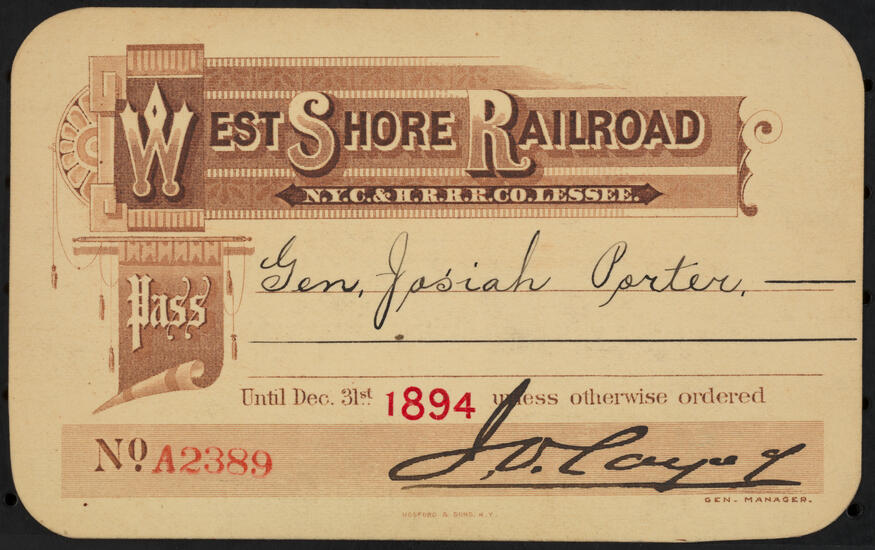 WEST SHORE RAILROAD
N.Y.C. & H.R.R.R. CO. LESSEE.
Pass
Gen. Josiah Porter.
Until Dec. 31st 1894 unless otherwise ordered
No. A2389
J. D. Layng
GEN. MANAGER.
HOSFORD & SONS, N.Y.